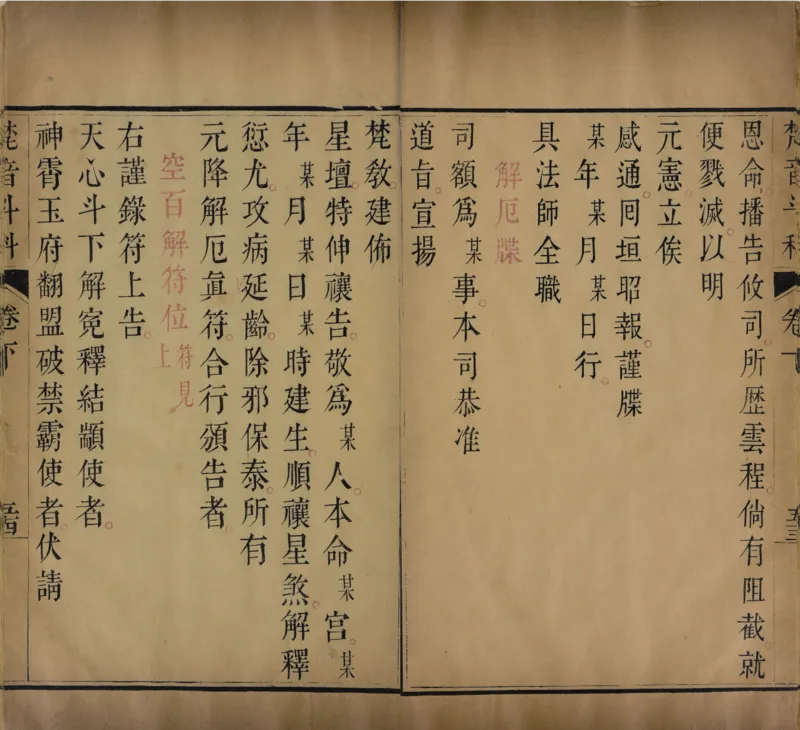 恩命。播告攸司。所歷雲程。倘有阻截。就
便戮滅。以明
元憲。立俟
感通。冋垣昭報。謹牒
某年某月某日行。
具法師全職
解厄牒
司額為某事。本司恭准
道旨。宣揚
梵教。建佈
星壇。特伸禳告。敬為某人。本命某宮。某
年某月某日某時建生。順禳星煞。解釋
愆尤。攻病延齡。除邪保泰。所有
元降解厄眞符。合行頒告者。
空百解符位符見上
右謹錄符上告。
天心斗下解寃釋結顓使者。
神霄玉府翻盟破禁霸使者。伏請
梵音斗科
卷下
五四